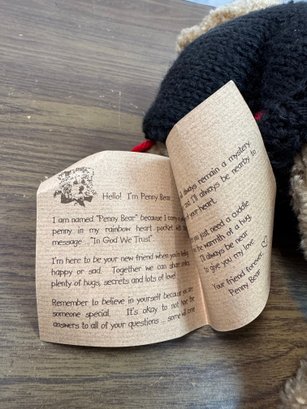 Hello! I'm Penny Bear
I am named "Penny Bear" because I carry a
penny in my rainbow heart pocket with
message ... "In God We Trust".
I'm here to be your new friend when you're feeling
happy or sad. Together we can share
plenty of hugs, secrets and lots of love!
Remember to believe in yourself because you are
someone special. It's okay to not have the
answers to all of your questions ... some will come
always remain a mystery,
and I'll always be nearby to
your heart.
you just need a cuddle
the warmth of a hug
I'll always be near
to give you my love
Your friend forever,
Penny Bear